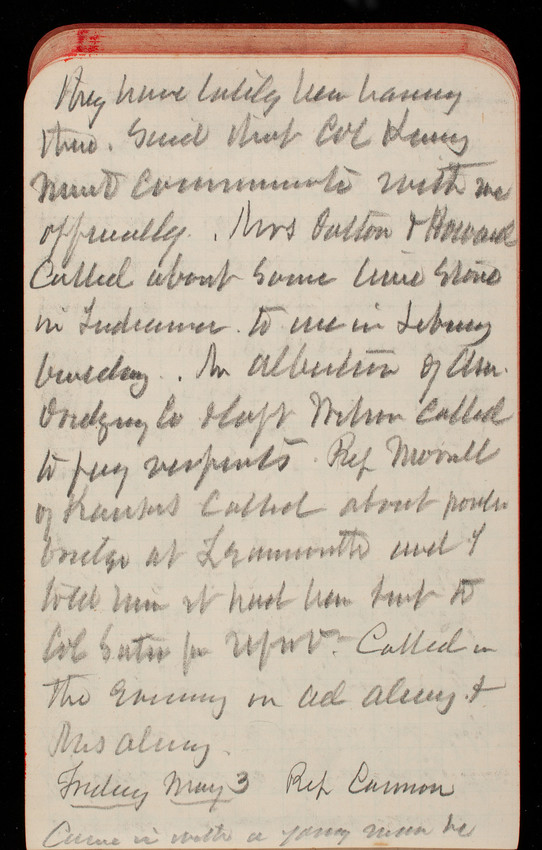 They have lately been having
there. Said that Col
must communicate with me
officially. Mrs Dalton & Howard
Called about Some lime Stone
in Indiana to use in Library
building. Mr of Am.
Dredging Co & Capt Wilson Called
to pay respects. Rep Morrill
of Kansas Called about
bridge at and I
told him it had been sent to
Col for report. Called in
the Evening on
Mrs
Friday May 3 Rep Cannon
Came in with a young man he